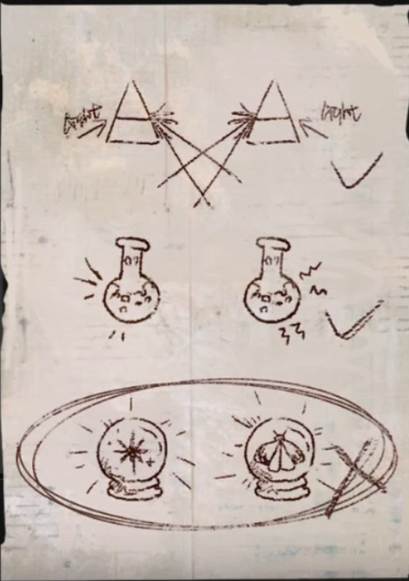 Light
Light